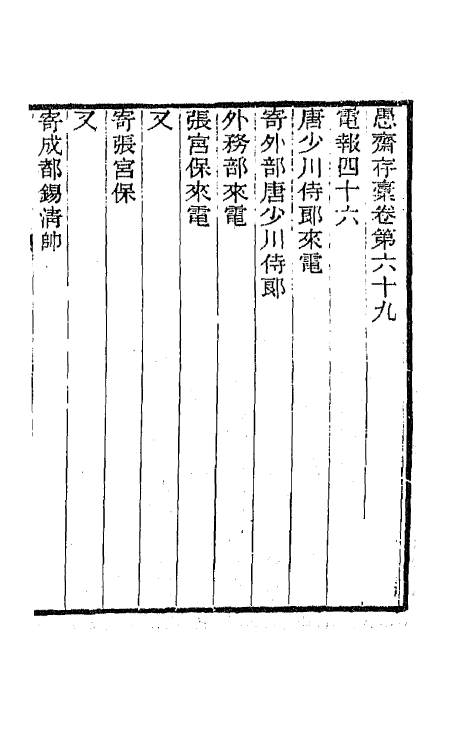 愚齋存稾卷第六十九
電報四十六
唐少川侍郞來電
寄外部唐少川侍郞
外務部來電
張宮保來電
又
寄張宮保
又
寄成都錫淸帥